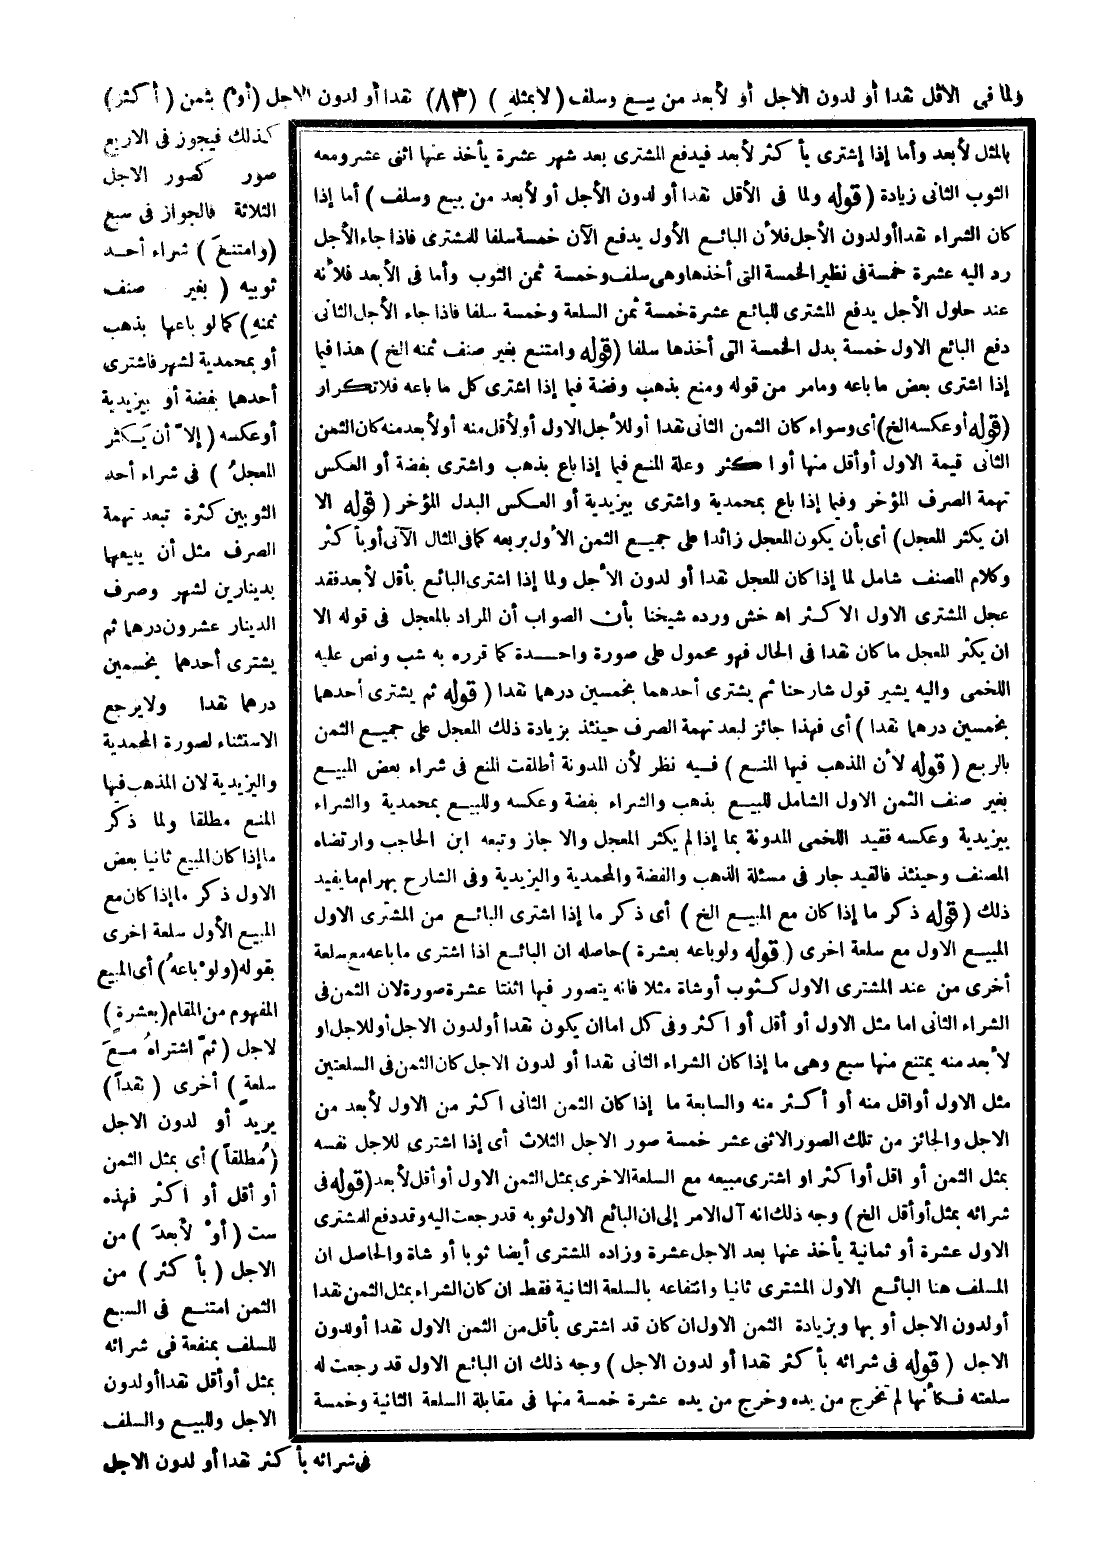 ولما فى الاقل نقدا أو لدون الاجل أو لأبعد من بيع وسلف (لابمثله) (٨٣) نقدا أو لدون الاجل (أو) بثمن (أكثر)
كذلك فيجوز فى الاربع
صور كصور الاجل
الثلاثة فالجواز فى سبع
(وامتنع) شراء أحد
ثوبيه (بغير صنف
ثمنه) كما لو باعها بذهب
أو بمحمدية لشهر فاشترى
أحدهما بفضة أو بيزيدية
أو عكسه (إلا أن يكثر
المعجل) فى شراء أحد
الثوبين كثرة تبعد تهمة
الصرف مثل أن يبيعها
بدينارين لشهر وصرف
الدينار عشرون درهما ثم
يشترى أحدهما بخمسين
درهما نقدا ولايرجع
الاستثناء لصورة المحمدية
واليزيدية لان المذهب فيها
المنع مطلقا ولما ذكر
ما إذا كان المبيع ثانيا بعض
الاول ذكر ما إذا كان مع
المبيع الأول سلعة اخرى
بقوله (ولو باعه) أى المبيع
المفهوم من المقام (بعشرة)
لاجل (ثم اشتراه مع
سلعة) أخرى (نقدا)
يريد أو لدون الاجل
(مطلقا) أى بمثل الثمن
أو أقل أو اكثر فهذه
ست (أو لأبعد) من
الاجل (بأكثر) من
الثمن امتنع فى السبع
للسلف بمنفعة فى شرائه
بمثل أو أقل نقدا أو لدون
الاجل وللبيع والسلف
فى شرائه بأكثر نقدا أو لدون الاجل
بالمثل لأبعد وأما إذا إشترى بأكثر لأبعد فيدفع المشترى بعد شهر عشرة يأخذ عنها اثنى عشر ومعه
الثوب الثانى زيادة (قوله ولما فى الأقل نقدا أو لدون الأجل أو لأبعد من بيع وسلف) أما إذا
كان الشراء نقدا أو لدون الأجل فلأن البائع الأول يدفع الآن خمسة سلفا للمشترى فاذا جاء الأجل
رد اليه عشرة خمسة فى نظير الخمسة التى أخذها وهى سلف وخمسة ثمن الثوب وأما فى الأبعد فلأنه
عند حلول الأجل يدفع المشترى للبائع عشرة خمسة ثمن السلعة وخمسة سلفا فاذا جاء الأجل الثانى
دفع البائع الاول خمسة بدل الخمسة التى أخذها سلفا (قوله وامتنع بغير صنف ثمنه الخ) هذا فيما
إذا اشترى بعض ما باعه ومامر من قوله ومنع بذهب وفضة فيما إذا اشترى كل ما باعه فلاتكرار
(قوله أو عكسه الخ) أى وسواء كان الثمن الثانى نقدا أو للأجل الاول أو لأقل منه أو لأبعد منه كان الثمن
الثانى قيمة الاول أو أقل منها أو اكثر وعلة المنع فيما إذا باع بذهب واشترى بفضة أو العكس
تهمة الصرف المؤخر وفيما إذا باع بمحمدية واشترى بيزيدية أو العكس البدل المؤخر (قوله الا
ان يكثر المعجل) أى بأن يكون المعجل زائدا على جميع الثمن الأول بربعه كما فى المثال الآتى أو بأكثر
وكلام المصنف شامل لما إذا كان المعجل نقدا أو لدون الأجل ولما إذا اشترى البائع بأقل لأبعد فقد
عجل المشترى الاول الاكثر اه خش ورده شيخنا بأن الصواب أن المراد بالمعجل فى قوله الا
ان يكثر المعجل ما كان نقدا فى الحال فهو محمول على صورة واحدة كما قرره به شب ونص عليه
اللخمى واليه يشير قول شارحنا ثم يشترى أحدهما بخمسين درهما نقدا (قوله ثم يشترى أحدهما
بخمسين درهما نقدا) أى فهذا جائز لبعد تهمة الصرف حينئذ بزيادة ذلك المعجل على جميع الثمن
بالربع (قوله لأن المذهب فيها المنع) فيه نظر لأن المدونة أطلقت المنع فى شراء بعض المبيع
بغير صنف الثمن الاول الشامل للبيع بذهب والشراء بفضة وعكسه وللبيع بمحمدية والشراء
بيزيدية وعكسه فقيد اللخمى المدونة بما إذا لم يكثر المعجل والا جاز وتبعه ابن الحاجب وارتضاه
المصنف وحينئذ فالقيد جار فى مسئلة الذهب والفضة والمحمدية واليزيدية وفى الشارح بهرام ما يفيد
ذلك (قوله ذكر ما إذا كان مع المبيع الخ) أى ذكر ما إذا اشترى البائع من المشترى الاول
المبيع الاول مع سلعة اخرى (قوله ولو باعه بعشرة) حاصله ان البائع اذا اشترى ما باعه مع سلعة
أخرى من عند المشترى الاول كثوب أو شاة مثلا فانه يتصور فيها اثنتا عشرة صورة لان الثمن فى
الشراء الثانى اما مثل الاول أو أقل أو اكثر وفى كل اما ان يكون نقدا أو لدون الاجل أو للاجل او
لأبعد منه يمتنع منها سبع وهى ما إذا كان الشراء الثانى نقدا أو لدون الاجل كان الثمن فى السلعتين
مثل الاول أو اقل منه أو أكثر منه والسابعة ما إذا كان الثمن الثانى اكثر من الاول لأبعد من
الاجل والجائز من تلك الصور الاثنى عشر خمسة صور الاجل الثلاث أى إذا اشترى للاجل نفسه
بمثل الثمن أو اقل أو أكثر او اشترى مبيعه مع السلعة الاخرى بمثل الثمن الاول أو أقل لأبعد (قوله فى
شرائه بمثل أو أقل الخ) وجه ذلك انه آل الامر إلى ان البائع الاول ثوبه قد رجعت اليه وقد دفع للمشترى
الاول عشرة أو ثمانية يأخذ عنها بعد الاجل عشرة وزاده المشترى أيضا ثوبا أو شاة والحاصل ان
المسلف هنا البائع الاول المشترى ثانيا وانتفاعه بالسلعة الثانية فقط ان كان الشراء بمثل الثمن نقدا
أو لدون الاجل أو بها وبزيادة الثمن الاول ان كان قد اشترى بأقل من الثمن الاول نقدا أو لدون
الاجل (قوله فى شرائه بأكثر نقدا أو لدون الاجل) وجه ذلك ان البائع الاول قد رجعت له
سلعته فكأنها لم تخرج من يده وخرج من يده عشرة خمسة منها فى مقابلة السلعة الثانية وخمسة